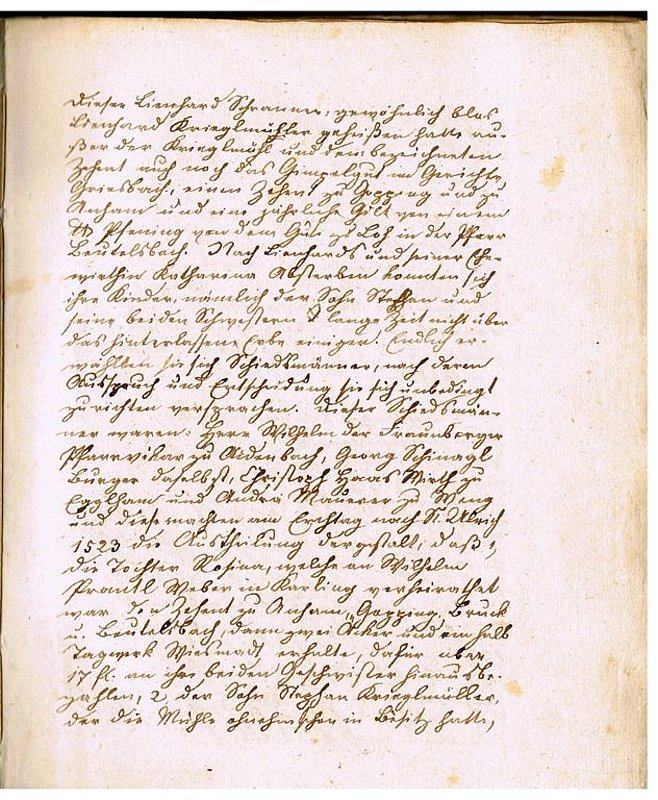 Dieser Lienhard Schrannen, gewöhnlich blos
Lienhard Krieglmühler geheißen hatte au-
ßer der Krieglmühl und dem bezeichneten
Zehent auch noch das Gimpelgut im Gerichte
Griesbach, einen Zehent zu Gopping und zu
Anham und eine jährliche Gült von einem
℔ Pfening von dem Gut zu Loh in der Pfarr
Beutelsbach. Nach Lienhards und seiner Ehe-
wirthin Katharena Absterben konnten sich
ihre Kinder, nämlich der Sohn Steffan und
seine beiden Schwestern lange Zeit nicht über
das hinterlassene Erbe einigen. Endlich er-
wählten sie sich Schiedsmänner, nach deren
Ausspruch und Entscheidung sie sich unbedingt
zu richten versprachen. Dieser Schiedsmän-
ner waren: Herr Wilhelm der Fraunberger
Pfarrvikar zu Aidenbach, Georg Schinagl
Burger daselbst, Christoph Haas Wirth zu
Egglham und Andrä Maurer zu Weng
und diese machten am Erchtag nach St. Ulrich
1523 die Austheilung dergestalt, daß 1,
die Tochter Rosina, welche an Wilhelm
Prantl Weber in Karling verheirathet
war den Zehent zu Anham, Gopping, Bruck
u. Beutelsbach, dann zwei Äcker und ein halb
Tagwerk Wiesmadt erhalte, dafür aber
17 fl. an ihre beiden Geschwister hinausbe-
zahlen, 2 der Sohn Stephan Krieglmüller,
der die Mühle ohnehin schon in Besitz hatte,